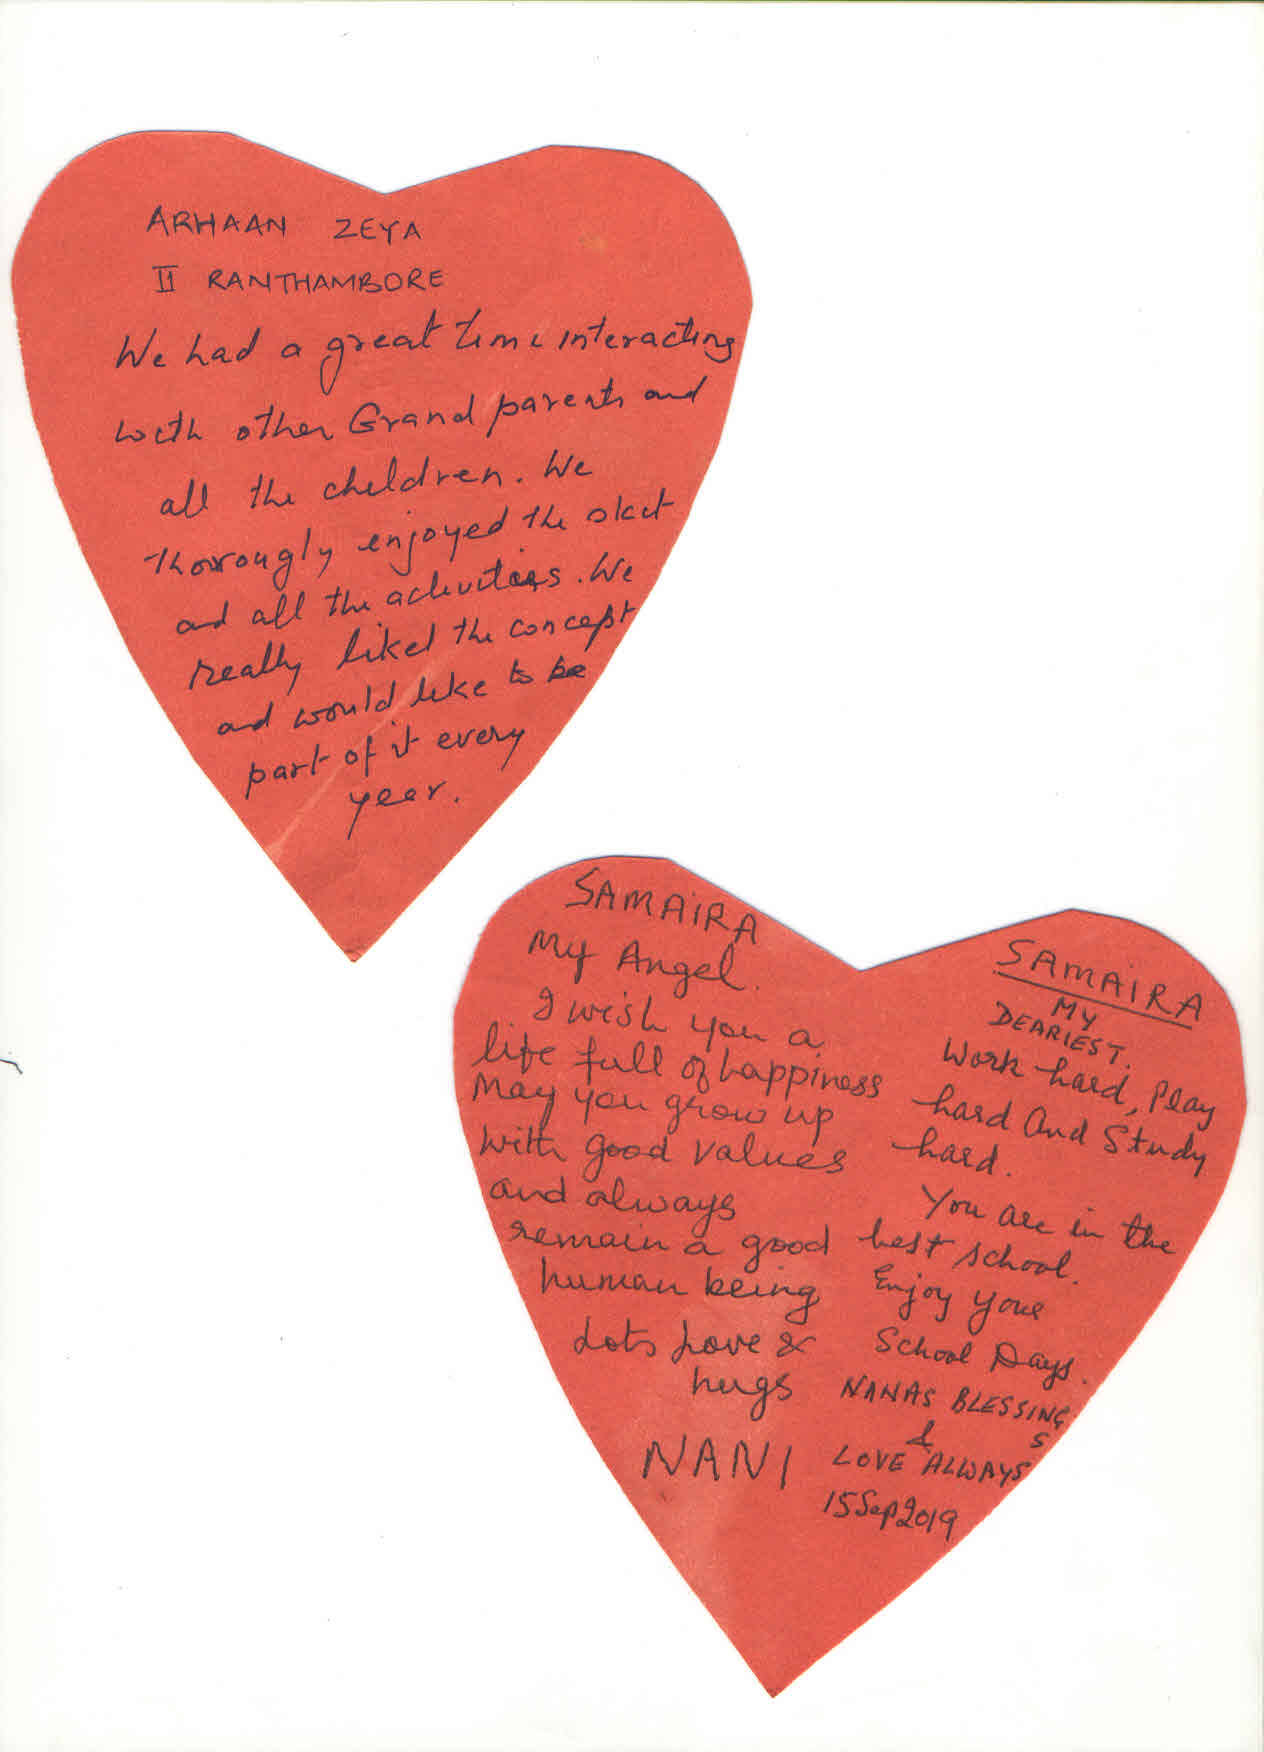 ARHAAN ZEYA
II RANTHAMBORE
We had a great time interacting
with other Grand parents and
all the children. We
thorougly enjoyed the skit
and all the activities. We
really liked the concept
and would like to be
part of it every
year.
SAMAIRA
My Angel.
I wish you a
life full of happiness
May you grow up
with good values
and always
remain a good
human being
Lots Love &
hugs
NANI
SAMAIRA
MY
DEARIEST.
Work hard, Play
hard And Study
hard.
You are in the
best school.
Enjoy your
School Days.
NANAS BLESSING
S
&
LOVE ALWAYS
15 Sep 2019